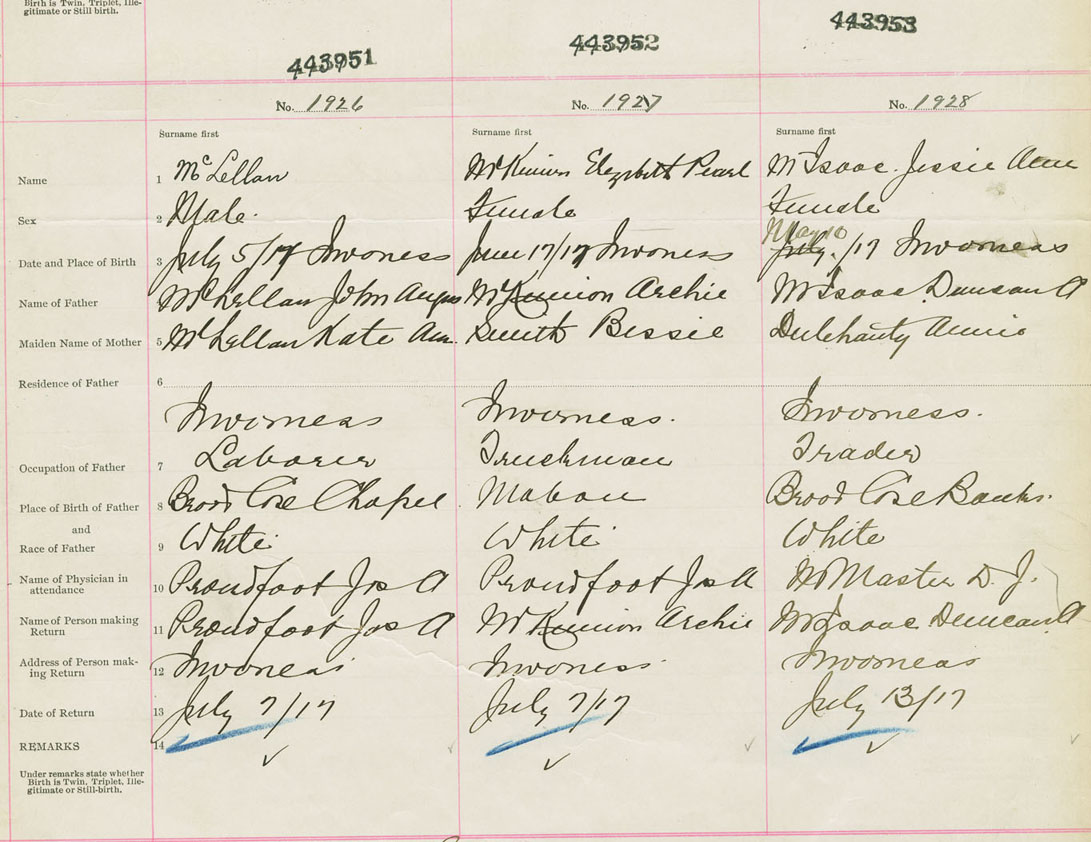 Birth is Twin, Triplet, Ille-
gitimate or Still birth.
443951 443952 443953
No. 1926 No. 1927 No. 1928
Surname first Surname first Surname first
Name 1 McLellan McKinnon Elizabeth Pearl McIsaac Jessie Ann
Sex 2 Male. Female Female
May 10
Date and Place of Birth 3 July 5/17 Inverness June 17/17 Inverness July /17 Inverness
Name of Father 4 McLellan John Angus McKinnon Archie McIsaac Duncan A
Maiden Name of Mother 5 McLellan Kate Ann. Smith Bessie Delehanty Annie
Residence of Father 6
Inverness Inverness. Inverness.
Occupation of Father 7 Laborer Truckman Trader
Place of Birth of Father 8 Broad Cove Chapel Mabou Broad Cove Banks.
and
Race of Father 9 White White White
Name of Physician in
attendance 10 Proudfoot Jas A Proudfoot Jas A McMaster D. J.
Name of Person making
Return 11 Proudfoot Jas A McKinnon Archie McIsaac Duncan A
Address of Person mak-
ing Return 12 Inverness Inverness Inverness
Date of Return 13 July 7/17 July 7/17 July 13/17
REMARKS 14
Under remarks state whether
Birth is Twin, Triplet, Ille-
gitimate or Still-birth.